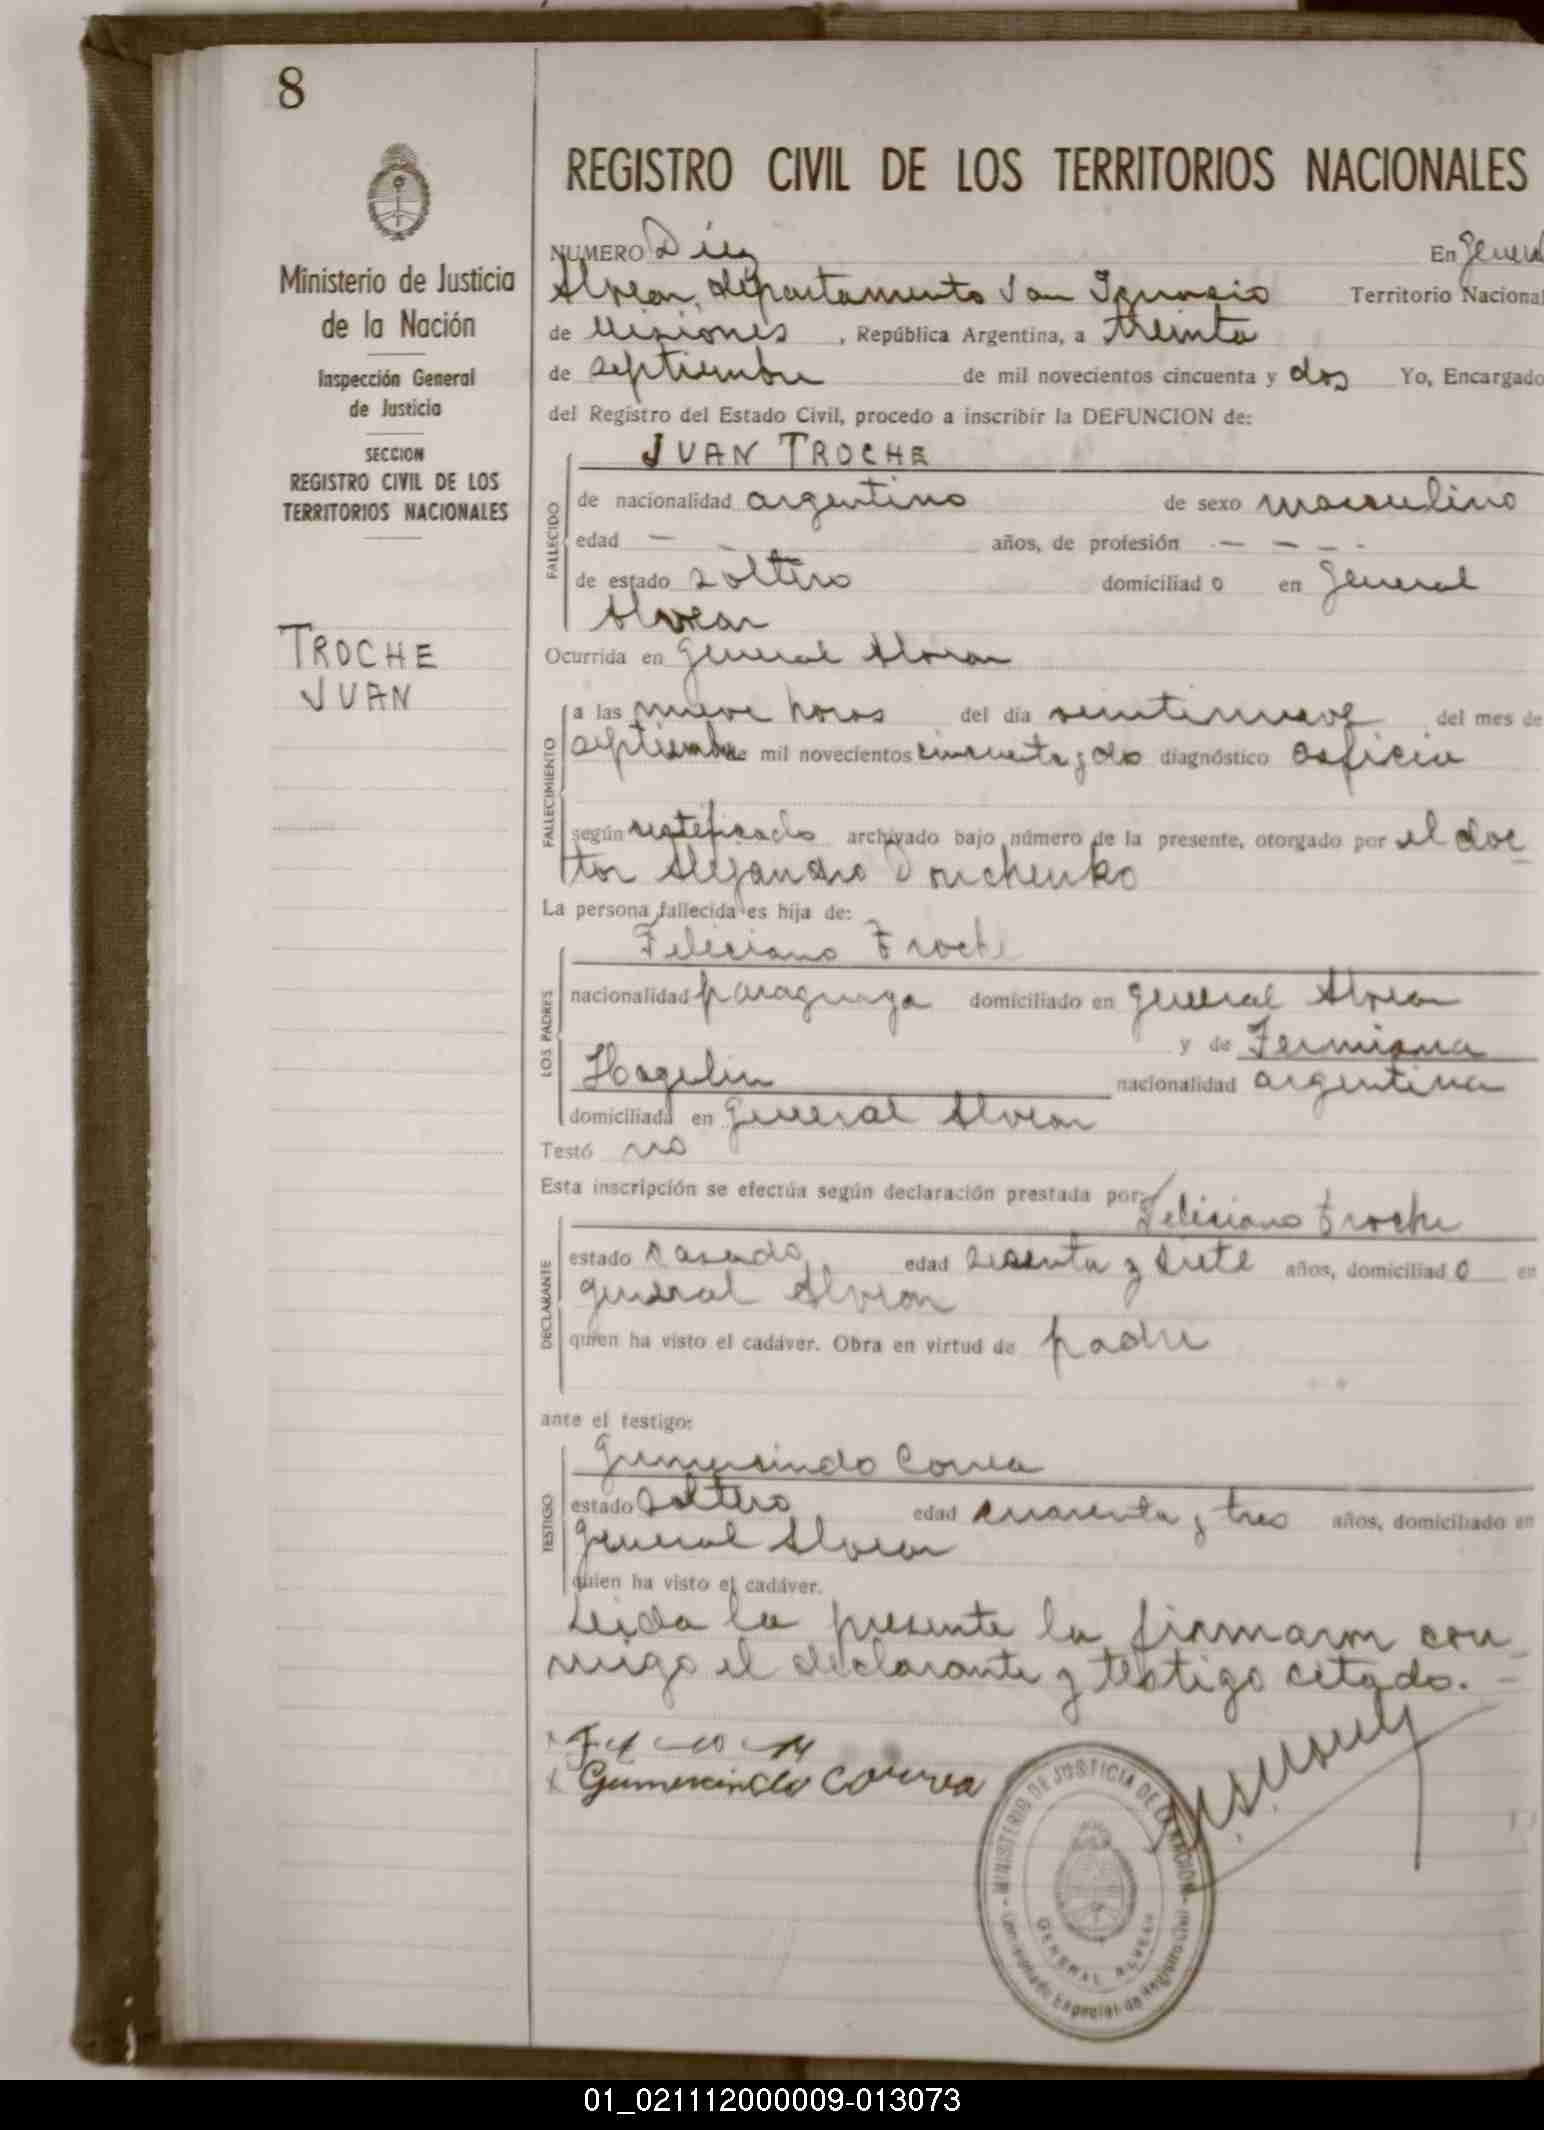 8
Ministerio de Justicia
de la Nación
Inspección General
de Justicia
SECCION
REGISTRO CIVIL DE LOS
TERRITORIOS NACIONALES
TROCHE
JUAN
REGISTRO CIVIL DE LOS TERRITORIOS NACIONALES
NUMERO Diez En General
Alvear, departamento San Ignacio Territorio Nacional
de Misiones , República Argentina, a treinta
de septiembre de mil novecientos cincuenta y dos Yo, Encargado
del Registro del Estado Civil, procedo a inscribir la DEFUNCION de:
JUAN TROCHE
FALLECIDO
de nacionalidad argentino de sexo masculino
edad — - años, de profesión - — — - -
de estado soltero domiciliad o en General
Alvear
Ocurrida en General Alvear
FALLECIMIENTO
a las nueve horas del día veintinueve del mes de
septiembre de mil novecientos cincuenta y dos diagnóstico asficia
según certificado archivado bajo número de la presente, otorgado por el doc-
tor Alejandro
La persona fallecida es hija de:
Feliciano Troche
LOS PADRES
nacionalidad paraguaya domiciliado en General Alvear
y de Fermiana
nacionalidad argentina
domiciliada en General Alvear
Testó no
Esta inscripción se efectúa según declaración prestada por: Feliciano Troche
DECLARANTE
estado casado edad sesenta y siete años, domiciliad o en
General Alvear
quien ha visto el cadáver. Obra en virtud de padre
ante el testigo:
Gumersindo Correa
TESTIGO
estado soltero edad cuarenta y tres años, domiciliado en
General Alvear
quien ha visto el cadáver.
Leida la presente la firmaron con-
migo el declarante y testigo citado. -
x
x Gumersindo Correa
MINISTERIO DE JUSTICIA DE LA NACION
GENERAL ALVEAR
01_021112000009-013073